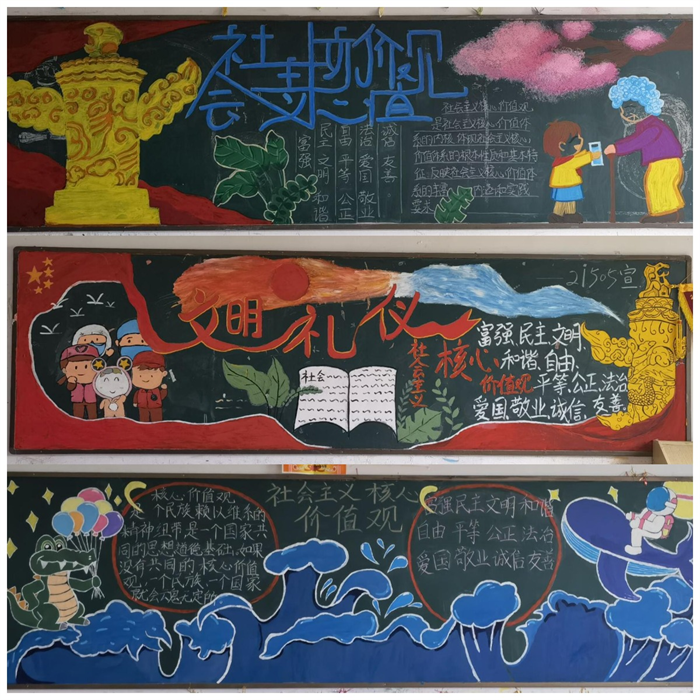 社会主义核心价值观
富强
民主 文明 和谐
自由 平等 公正
法治 爱国 敬业
诚信 友善
社会主义核心价值观
是社会主义核心价值体
系的内核,体现社会主义核心
价值体系的根本性质和基本特
征,反映社会主义核心价值体
系的丰富内涵和实践
要求
21505宣
文明礼仪
社会
社会主义
核心
价值观
富强,民主,文明,
和谐,自由,
平等,公正,法治,
爱国,敬业,诚信,友善
社会主义核心
价值观
核心价值观
一个民族赖以维系的
精神纽带是一个国家共
同的思想道德基础,如果
没有共同的核心价值
观,一个民族,一个国家
就会
富强民主文明和谐
自由平等公正法治
爱国敬业诚信友善